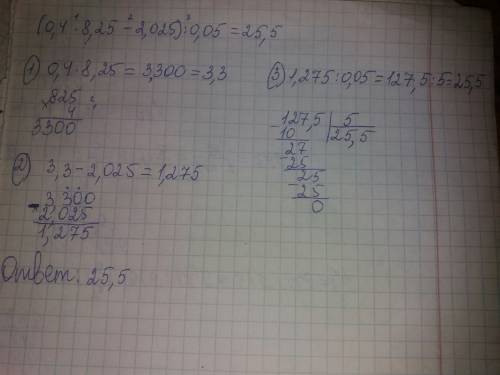 (0,4 · 8,25 - 2,025) : 0,05 = 25,5
1) 0,4 · 8,25 = 3,300 = 3,3
825
× 4
3300
2) 3,3 - 2,025 = 1,275
- 3,300
2,025
1,275
3) 1,275 : 0,05 = 127,5 : 5 = 25,5
- 127,5 | 5
10 | 25,5
27
- 25
25
- 25
0
Ответ: 25,5